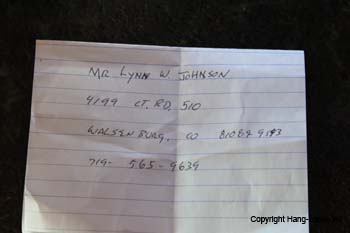 MR LYNN W JOHNSON
4199 CT. RD. 510
WALSENBURG, CO 81089 9193
719- 565-9639
Copyright Hang-